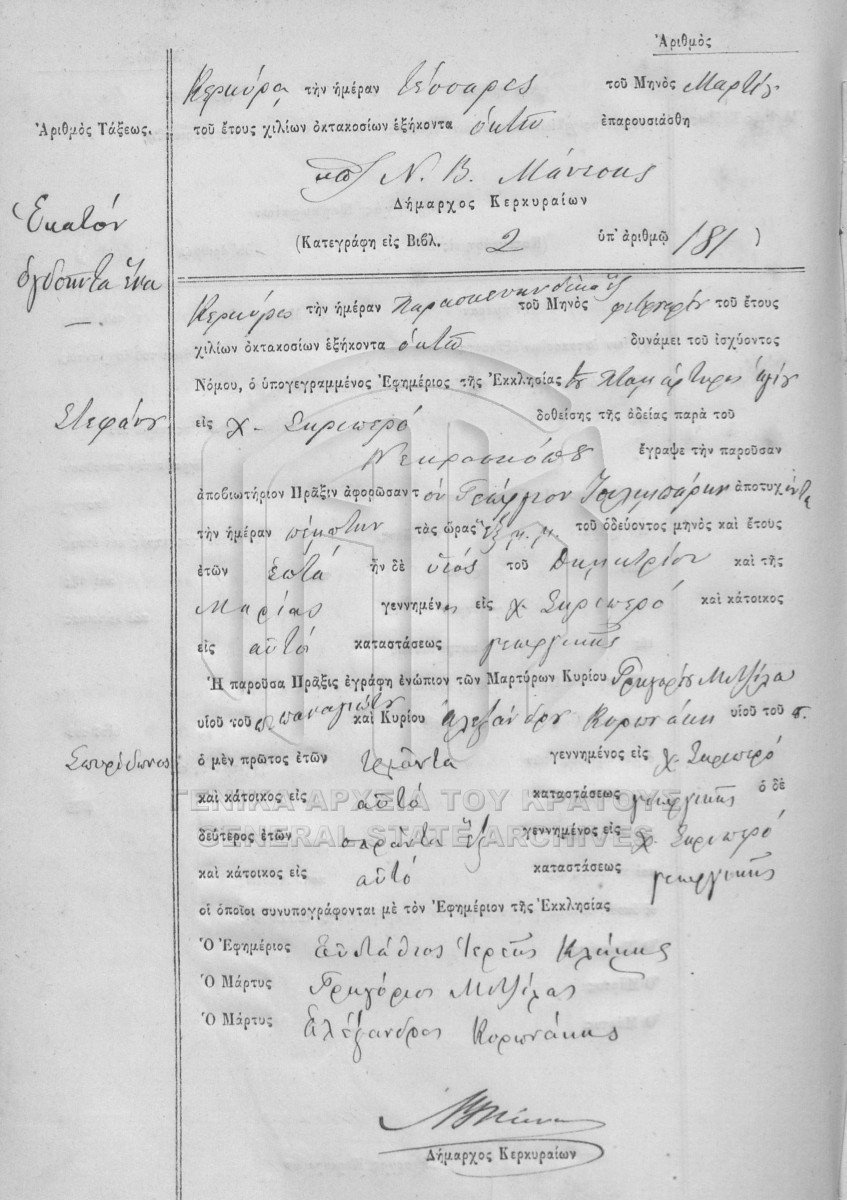 Ἀριθμὸς
Κερκύρᾳ τὴν ἡμέραν τέσσαρες τοῦ Μηνὸς Μαρτίου
Ἀριθμὸς Τάξεως. τοῦ ἔτους χιλίων ὀκτακοσίων ἑξήκοντα ὀκτὼ ἐπαρουσιάσθη
Ν. Β. Μάνεσης
Δήμαρχος Κερκυραίων
Ἑκατὸν
(Κατεγράφη εἰς Βιβλ. 2 ὑπ' ἀριθμῷ 181 )
ὀγδοῆντα ἕνα
Κερκύρᾳ τὴν ἡμέραν Παρασκευὴν τοῦ Μηνὸς τοῦ ἔτους
χιλίων ὀκτακοσίων ἑξήκοντα ὀκτὼ δυνάμει τοῦ ἰσχύοντος
Νόμου, ὁ ὑπογεγραμμένος Ἐφημέριος τῆς Ἐκκλησίας ἁγίου
Στεφάνου εἰς χ. Σκριπερό δοθείσης τῆς ἀδείας παρὰ τοῦ
Νεκροσκόπου ἔγραψε τὴν παροῦσαν
ἀποβιωτήριον Πρᾶξιν ἀφορῶσαν τὸν Γεώργιον ἀποτυχόντα
τὴν ἡμέραν πέμπτην τὰς ὥρας ἓξ π.μ. τοῦ ὁδεύοντος μηνὸς καὶ ἔτους
ἐτῶν ἑπτά ἦν δὲ υἱός τοῦ Δημητρίου καὶ τῆς
Μαρίας γεννημένος εἰς χ. Σκριπερό καὶ κάτοικος
εἰς αὐτό καταστάσεως γεωργικῆς
Ἡ παροῦσα Πρᾶξις ἐγράφη ἐνώπιον τῶν Μαρτύρων Κυρίου Γρηγορίου Μετζίλα
υἱοῦ τοῦ π. Παναγιώτου καὶ Κυρίου Ἀλεξάνδρου Κορωνάκη υἱοῦ τοῦ π.
Σπυρίδωνος ὁ μὲν πρῶτος ἐτῶν τριάντα γεννημένος εἰς χ. Σκριπερό
καὶ κάτοικος εἰς αὐτό καταστάσεως γεωργικῆς ὁ δὲ
ΓΕΝΙΚΑ ΑΡΧΕΙΑ ΤΟΥ ΚΡΑΤΟΥΣ
GENERAL STATE ARCHIVES
δεύτερος ἐτῶν σαράντα ἓξ γεννημένος εἰς χ. Σκριπερό
καὶ κάτοικος εἰς αὐτό καταστάσεως γεωργικῆς
οἱ ὁποῖοι συνυπογράφονται μὲ τὸν Ἐφημέριον τῆς Ἐκκλησίας
Ὁ Ἐφημέριος Εὐστάθιος Ἱερεὺς
Ὁ Μάρτυς Γρηγόριος Μετζίλας
Ὁ Μάρτυς Ἀλέξανδρος Κορωνάκης
Δήμαρχος Κερκυραίων